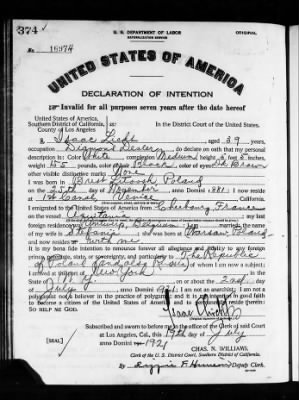 374
U. S. DEPARTMENT OF LABOR
NATURALIZATION SERVICE
ORIGINAL
No. 16974
UNITED STATES OF AMERICA
DECLARATION OF INTENTION
Invalid for all purposes seven years after the date hereof
United States of America,
Southern District of California, ss:
County of Los Angeles
In the District Court of the United States.
I, Isaac Licht, aged 39 years,
occupation Diamond Dealer, do declare on oath that my personal
description is: Color White, complexion Medium, height 5 feet 8 inches,
weight 155 pounds, color of hair Black, color of eyes Dk Brown
other visible distinctive marks None
I was born in Brest Litovsk Poland
on the 25th day of November, anno Domini 1881; I now reside
at Canal, Venice, California.
I emigrated to the United States of America from Cherbourg France
on the vessel Aquitania; my last
foreign residence was Antwerp, Belgium; I am married; the name
of my wife is; she was born at Warsaw Poland
and now resides at with me
It is my bona fide intention to renounce forever all allegiance and fidelity to any foreign
prince, potentate, state, or sovereignty, and particularly to The Republic
of Poland, of whom I am now a subject;
I arrived at the port of New York, in the
State of N. Y., on or about the 2nd day
of July, anno Domini 1921; I am not an anarchist; I am not a
polygamist nor a believer in the practice of polygamy; and it is my intention in good faith
to become a citizen of the United States of America and to permanently reside therein:
SO HELP ME GOD.
Isaac Licht
Subscribed and sworn to before me in the office of the Clerk of said Court
at Los Angeles, Cal., this 19th day of July
anno Domini 1921
[SEAL]
CHAS. N. WILLIAMS,
Clerk of the U. S. District Court, Southern District of California.
By Deputy Clerk.